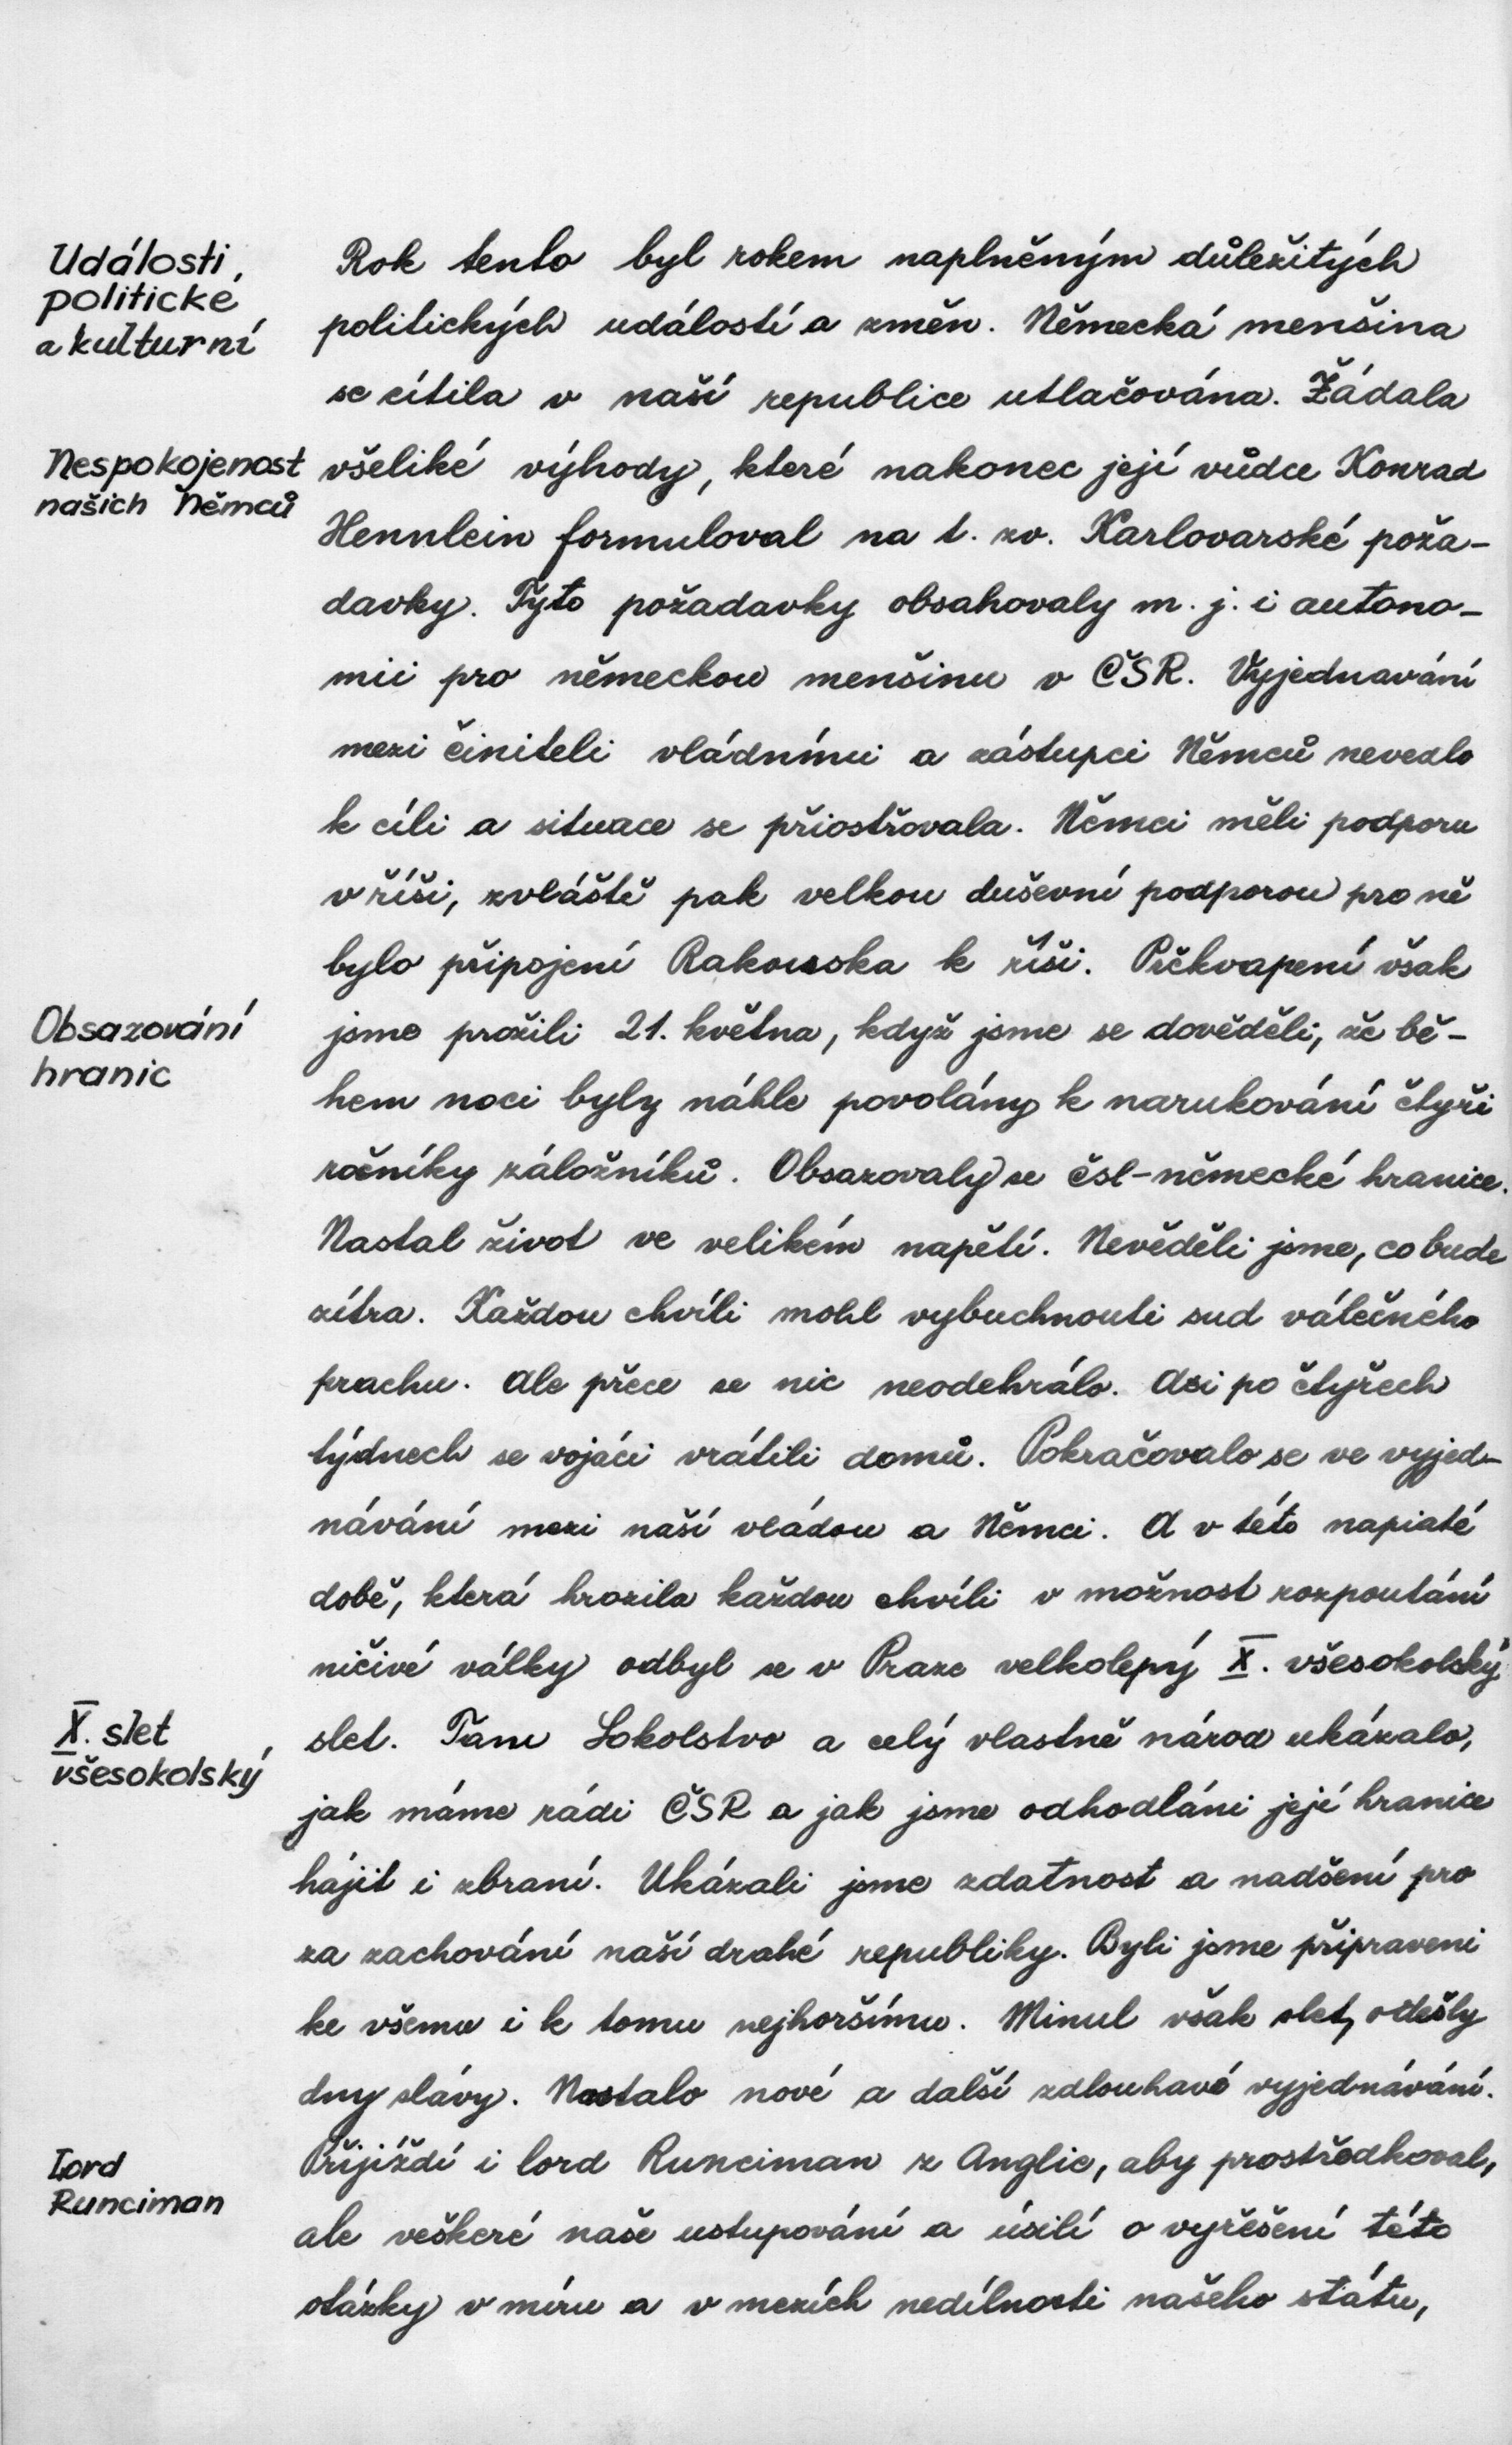 Události
politické
a kulturní
Rok tento byl rokem naplněným důležitých
politických událostí a změn. Německá menšina
se cítila v naší republice utlačována. Žádala
Nespokojenost
našich Němců
všeliké výhody, které nakonec její vůdce Konrad
Hennlein formuloval na t. zv. Karlovarské poža-
davky. Tyto požadavky obsahovaly m. j. i autono-
mii pro německou menšinu v ČSR. Vyjednavání
mezi činiteli vládními a zástupci Němců nevedlo
k cíli a situace se přiostřovala. Němci měli podporu
v říši, zvláště pak velkou duševní podporou pro ně
bylo připojení Rakouska k říši. Překvapení však
Obsazování
hranic
jsme prožili 21. května, když jsme se dověděli, že bě-
hem noci byly náhle povolány k narukování čtyři
ročníky záložníků. Obsazovaly se čsl-německé hranice.
Nastal život ve velikém napětí. Nevěděli jsme, co bude
zítra. Každou chvíli mohl vybuchnouti sud válečného
prachu. Ale přece se nic neodehrálo. Asi po čtyřech
týdnech se vojáci vrátili domů. Pokračovalo se ve vyjed-
návání mezi naší vládou a Němci. A v této napiaté
době, která hrozila každou chvíli v možnost rozpoutání
ničivé války odbyl se v Praze velkolepý X. všesokolský
X. slet
všesokolský
slet. Tam Sokolstvo a celý vlastně národ ukázalo,
jak máme rádi ČSR a jak jsme odhodláni její hranice
hájit i zbraní. Ukázali jsme zdatnost a nadšení pro
za zachování naší drahé republiky. Byli jsme připraveni
ke všemu i k tomu nejhoršímu. Minul však slet, odešly
dny slávy. Nastalo nové a další zdlouhavé vyjednávání.
Lord
Runciman
Přijíždí i lord Runciman z Anglie, aby prostředkoval,
ale veškeré naše ustupování a úsilí o vyřešení této
otázky v míru a v mezích nedílnosti našeho státu,